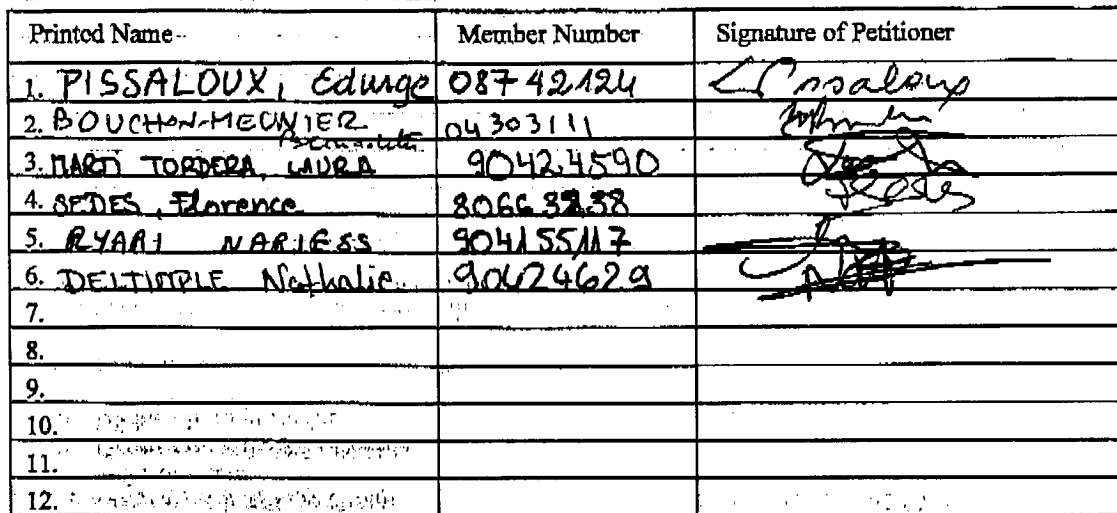 Printed Name Member Number Signature of Petitioner
1. PISSALOUX, Edwige 08742124
2. BOUCHON-MEUNIER Bernadette 04303111
3. MARTI TORDERA, LAURA 90424590
4. SEDES, Florence
5. RYARI NARJESS 904155117
6. DELTIMPLE Nathalie 90424629
7.
8.
9.
10.
11.
12.